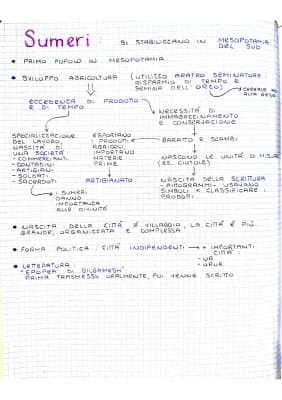 Sumeri : SI STABILIZZANO IN MESOPOTAMIA
DEL SUD
• PRIMO POPOLO IN MESOPOTAMIA
• SVILUPPO AGRICOLTURA (UTILIZZO ARATRO SEMINATORE:
RISPARMIO DI TEMPO E
SEMINA DELL'ORZO)
ECCEDENZA DI PRODOTTO
E DI TEMPO
NECESSITÀ DI
IMMAGAZZINAMENTO
E CONSERVAZIONE
SPECIALIZZAZIONE
DEL LAVORO,
NASCITA DI
UNA SOCIETÀ
- COMMERCIANTI
- CONTADINI
- ARTIGIANI
- SOLDATI
- SACERDOTI
ESPORTANO
I PRODOTTI
AGRICOLI,
IMPORTANO
MATERIE
PRIME
BARATTO E SCAMBI
NASCONO LE UNITÀ DI MISURA
(ES. CIOTOLE)
ARTIGIANATO
NASCITA DELLA SCRITTURA
- PITTOGRAMMI: USAVANO
SIMBOLI X CLASSIFICARE I
PRODOTTI
I SUMERI
DANNO
IMPORTANZA
ALLE DIVINITÀ
• NASCITA DELLA CITTÀ ≠ VILLAGGIO, LA CITTÀ È PIÙ
GRANDE, ORGANIZZATA E COMPLESSA
• FORMA POLITICA: CITTÀ INDIPENDENTI → + IMPORTANTI
CITTÀ:
- UR
- URUK
• LETTERATURA:
"EPOPEA DI GILGAMESH"
PRIMA TRASMESSO ORALMENTE, POI VENNE SCRITTO